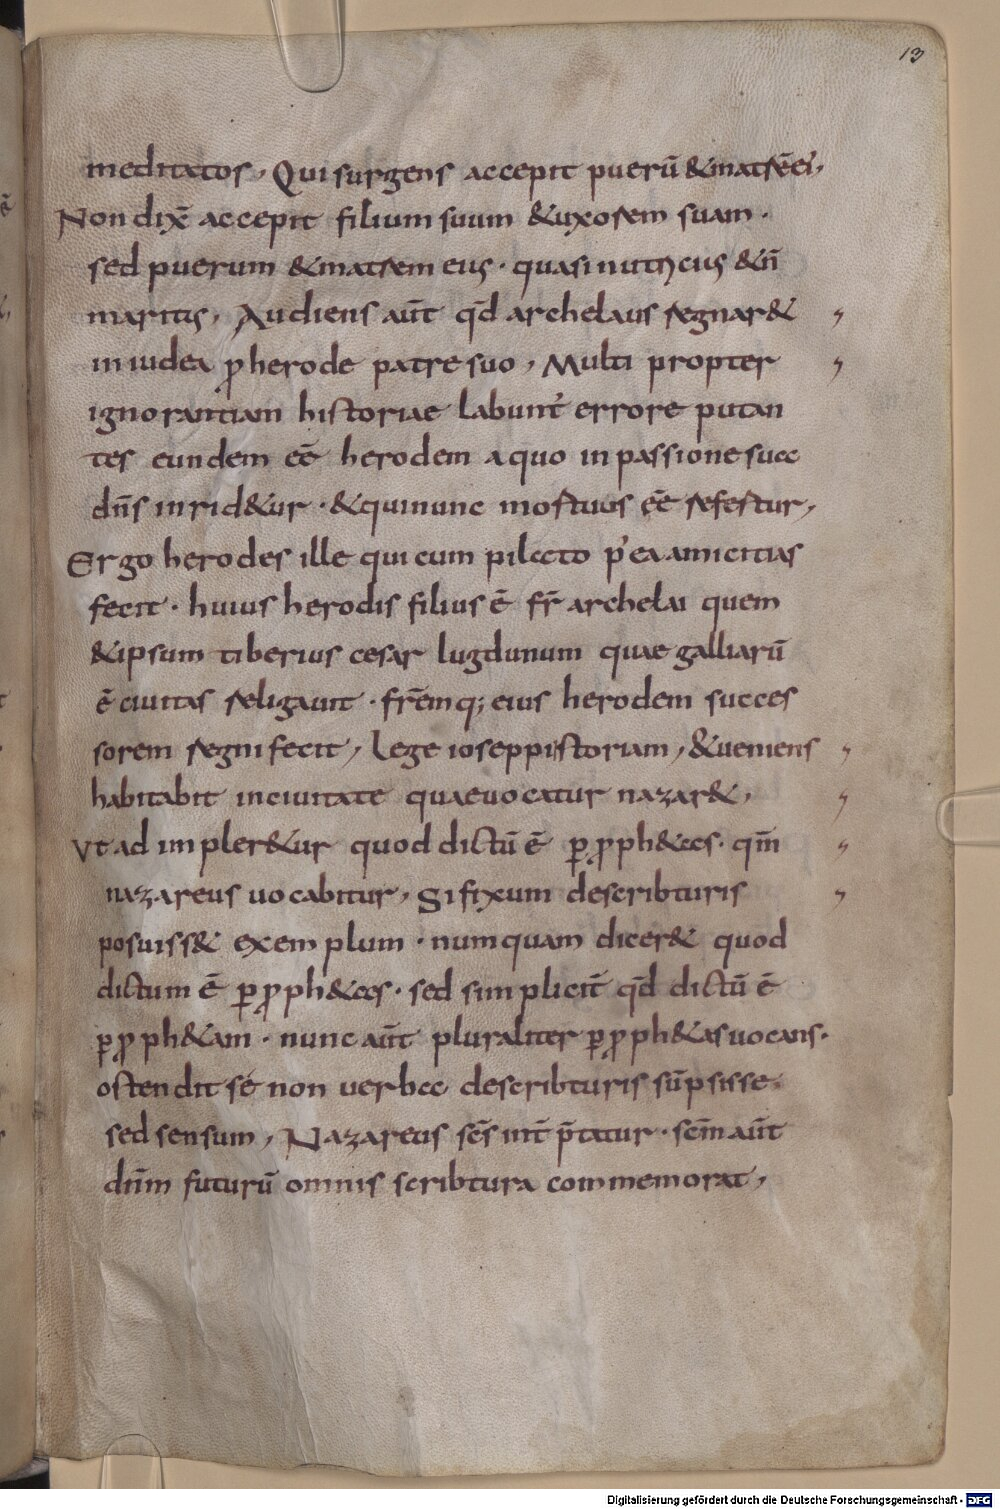 13
meditatos, Qui surgens accepit puerū & matrē ei',
Non dix̄ accepit filium suum & uxorem suam.
sed puerum & matrem eius · quasi nutricius & n̄
maritus, Audiens aūt qd̄ archelaus regnar&
in iudea ꝓ herode patre suo, Multi propter
ignorantiam historiae labunt' errore putan
tes eundem eē herodem a quo in passione sua
dn̄s inrid&ur · & qui nunc mortuus eē refertur,
Ergo herodes ille qui cum pilato p' ea amicitias
fecit · huius herodis filius ē fr̄ archelai quem
& ipsum tiberius cesar lugdunum quae galliarū
ē ciuitas religauit · fr̄emq; eius herodem succes
sorem regni fecit, Lege ioseppi storiam, & ueniens
habitabit in ciuitate quae uocatur nazar&,
Vt adimpler&ur quod dictū ē ꝑ ꝓph&as · qm̄
nazareus uocabitur, Si fixum de scribturis
posuiss& exemplum · numquam dicer& quod
dictum ē ꝑ ꝓph&as · sed simplicit̄ qd̄ dictū ē
ꝑ ꝓph&am · nunc aūt pluraliter ꝑ ꝓph&as uocans ·
ostendit sé non uerba de scribturis sūpsisse.
sed sensum, Nazareus sc̄s int̄ p̄tatur · sc̄m aūt
dn̄m futurū omnis scribtura commemorat,
Digitalisierung gefördert durch die Deutsche Forschungsgemeinschaft - DFG